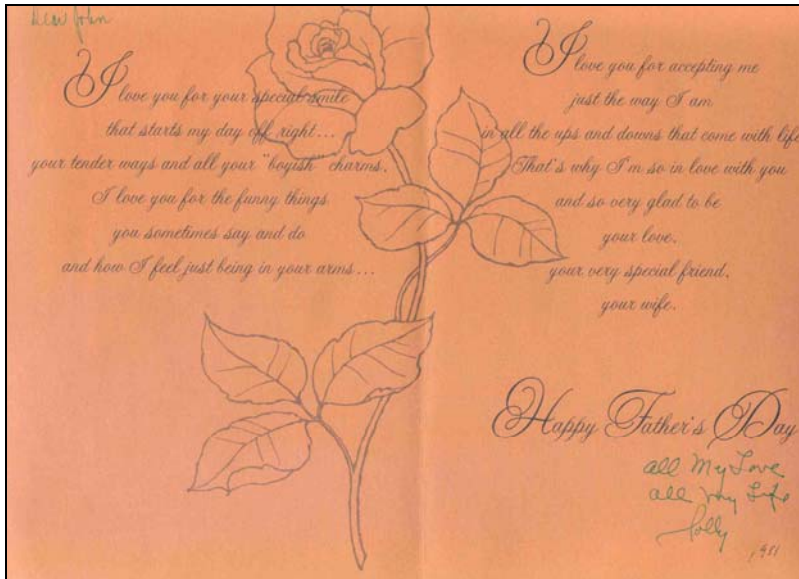 Dear John
I love you for your special smile
that starts my day off right...
your tender ways and all your "boyish" charms.
I love you for the funny things
you sometimes say and do
and how I feel just being in your arms...
I love you for accepting me
just the way I am
in all the ups and downs that come with life
That's why I'm so in love with you
and so very glad to be
your love,
your very special friend,
your wife.
Happy Father's Day
all My Love
all my Life